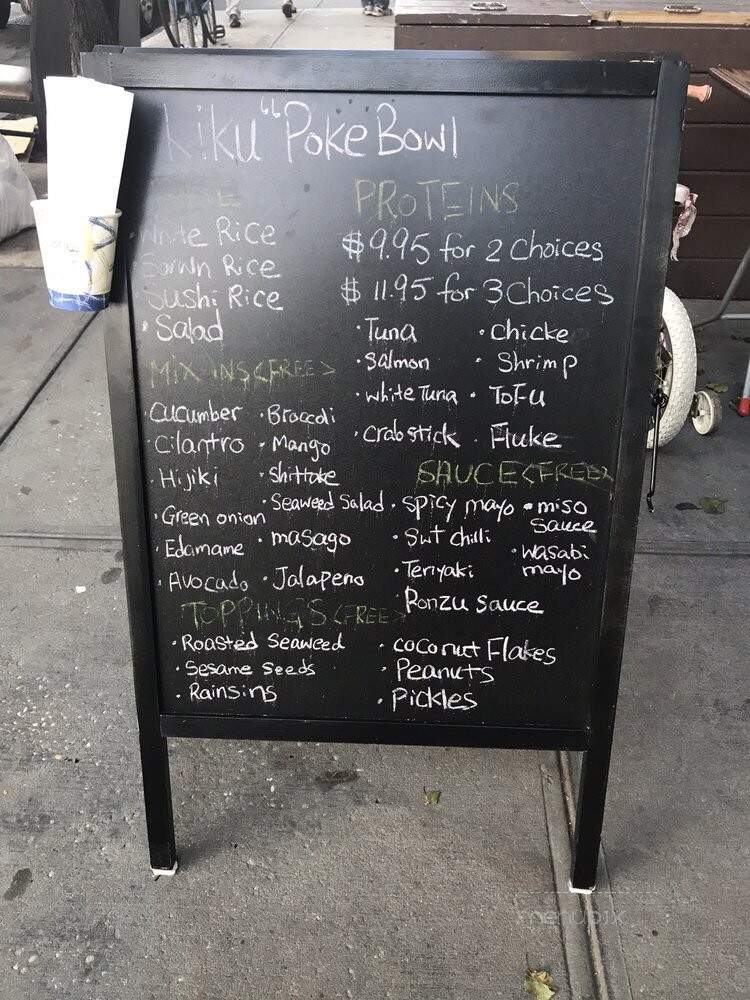 kiku "Poke Bowl
PROTEINS
White Rice
$9.95 for 2 choices
Borwn Rice
$11.95 for 3 Choices
Sushi Rice
· Salad
· Tuna · Chicke
· Salmon · Shrimp
· white Tuna · ToFu
· crab stick · Fluke
Mix INS <FREE>
Cucumber · Broccoli
· Cilantro · Mango
· Hijiki · Shittake
· Seaweed Salad
· Green onion
· masago
· Edamame
· Avocado · Jalapeno
SAUCE <FREE>
· Spicy mayo · miso
sauce
· Swt chilli
· wasabi
mayo
· Teriyaki
Ponzu sauce
TOPPINGS <FREE>
· Roasted Seaweed · coconut Flakes
· Sesame Seeds · Peanuts
· Rainsins · Pickles
menupix